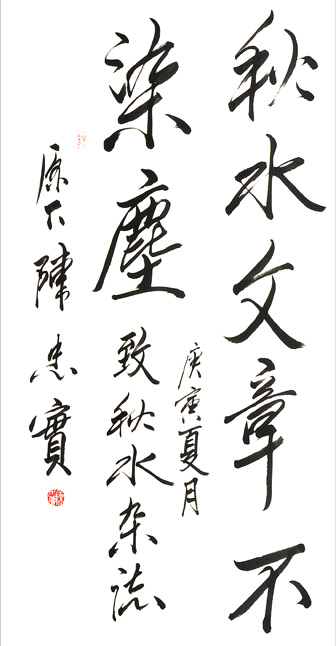 秋水文章不
染塵
庚寅夏月
致秋水杂誌
原下陳忠實